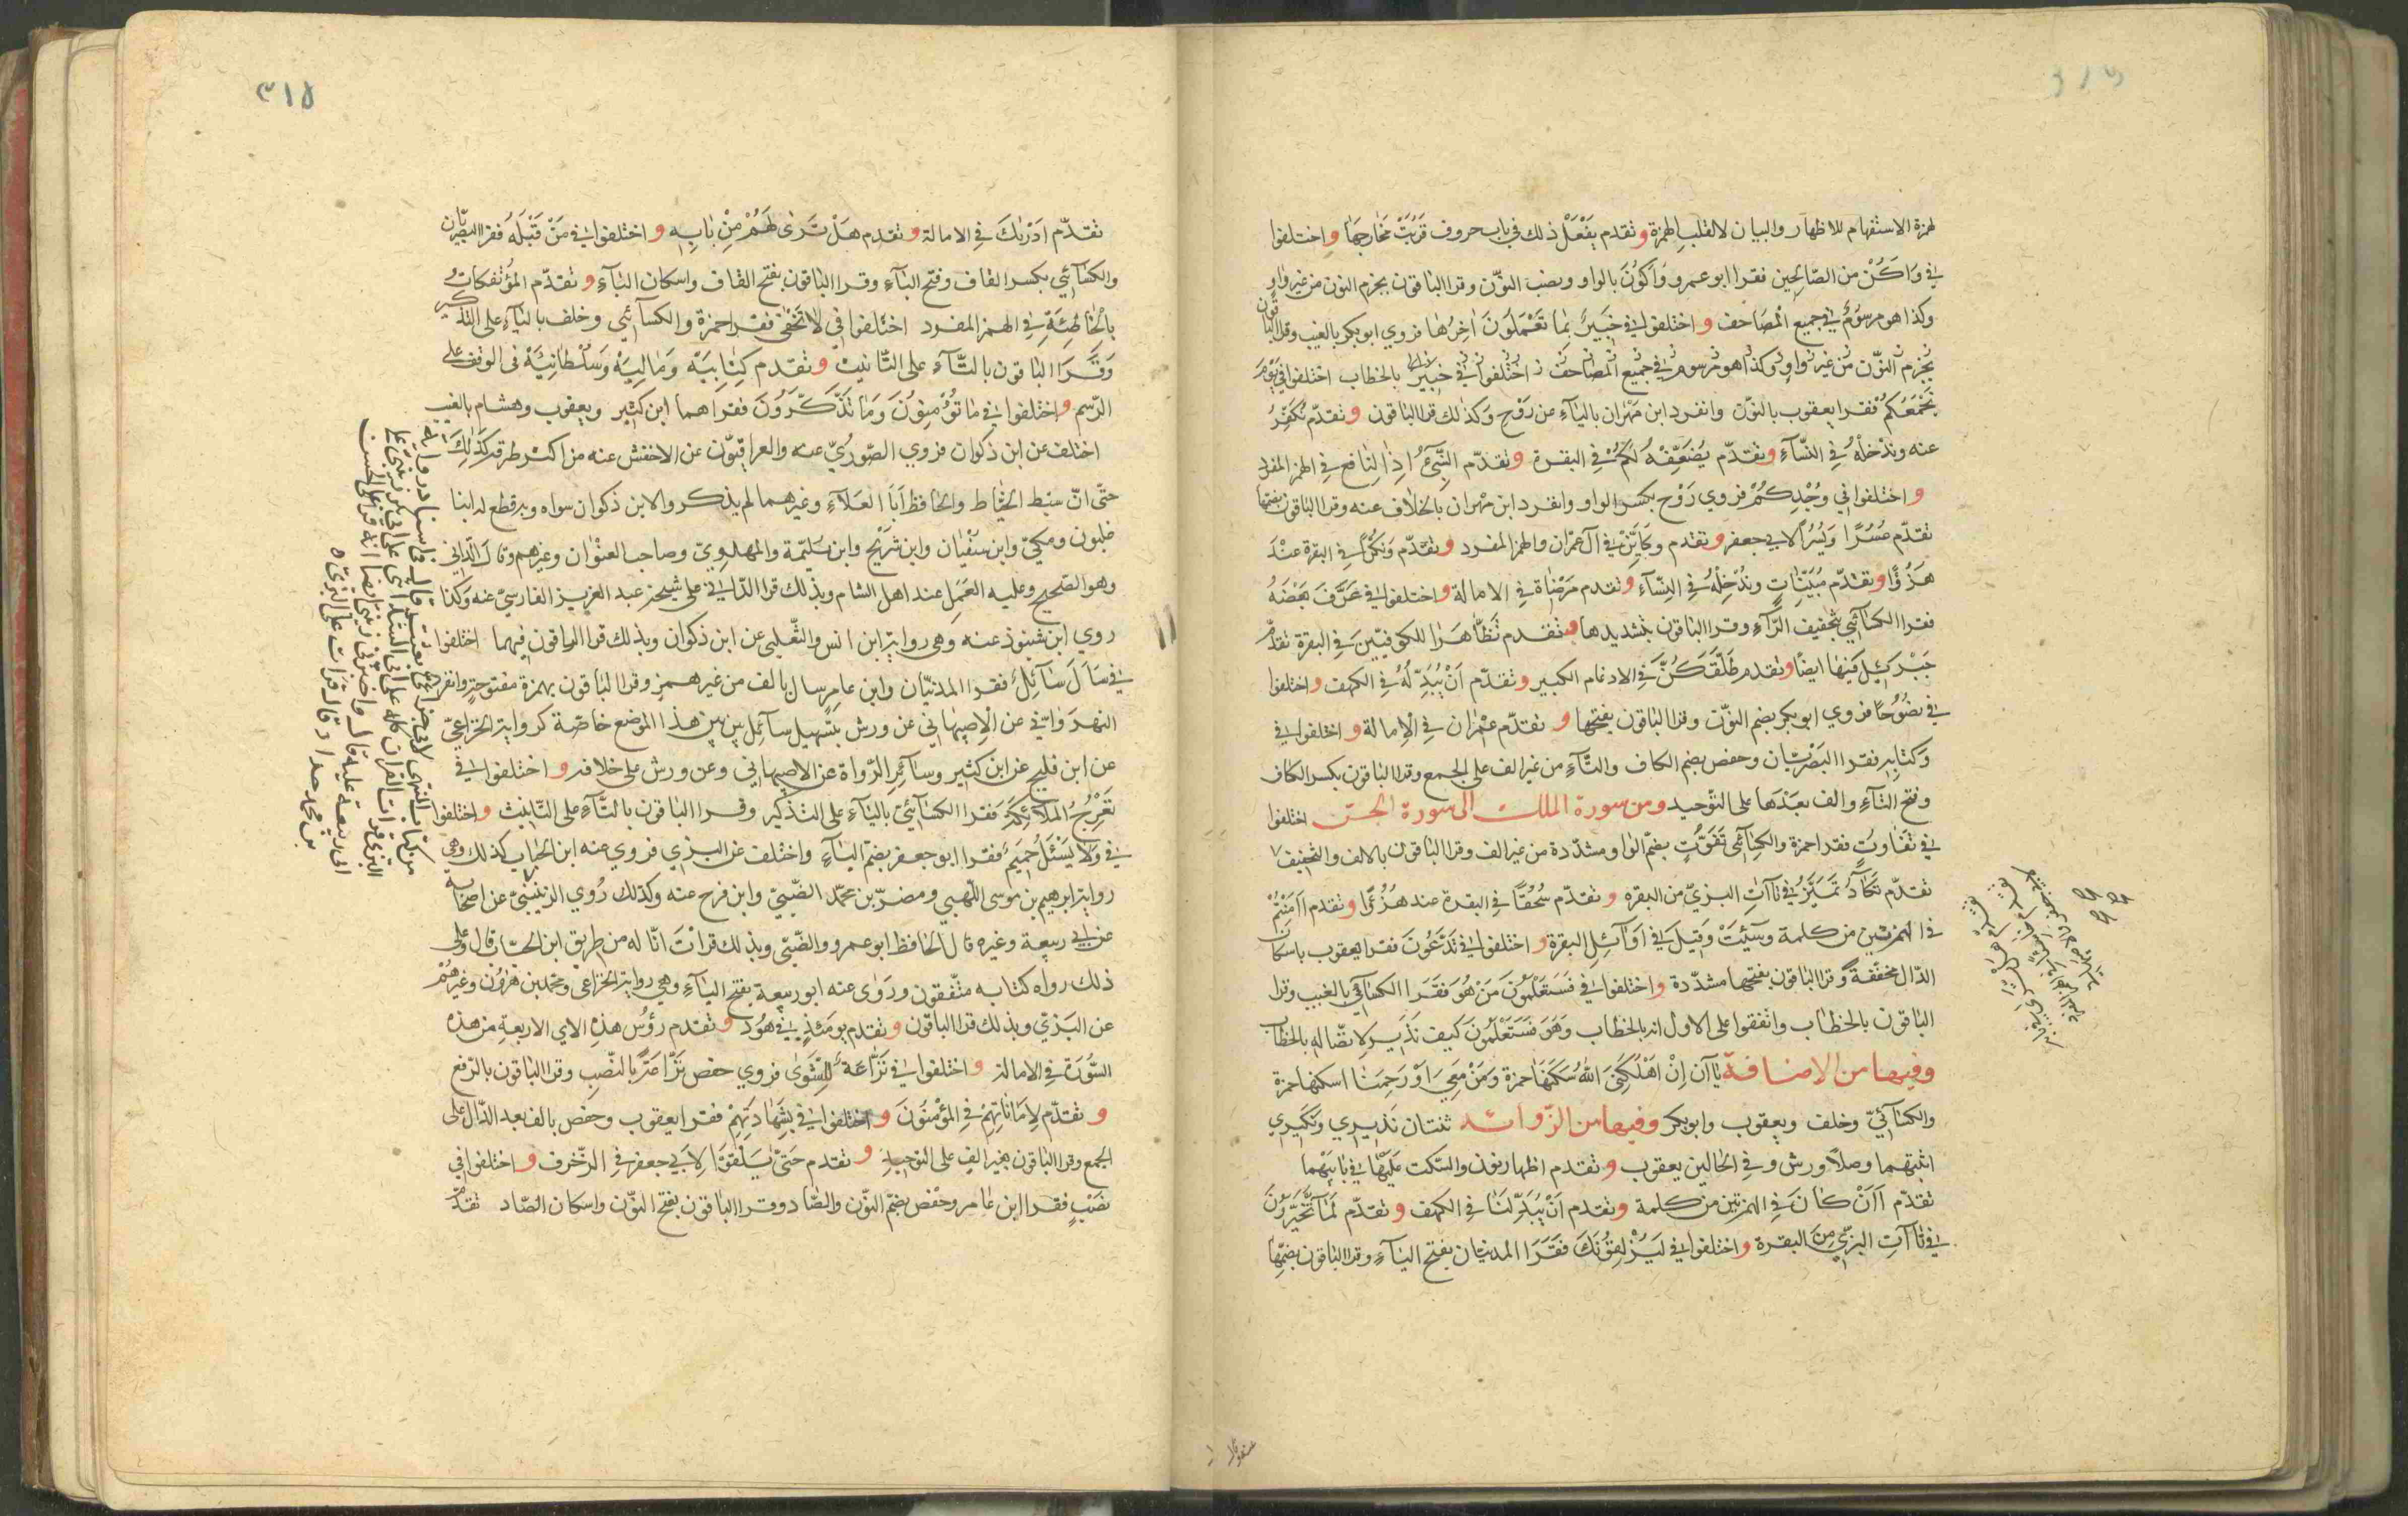 لهمزة الاستفهام للاظهار والبيان لا لقلب الهمزة وتقدم يَفْعَلْ ذلك في باب حروف قَرُبَتْ مَخَارِجُهَا واختلفوا
في وَاَكُنْ من الصّالحين فقرا ابو عمرو وَاَكُونَ بالواو ونصب النّون وقرا الباقون بجزم النون من غير واو
وكذا هو مرسُومٌ في جميع المصَاحف واختلفوا في خَبِيرٌ بِمَا تَعْمَلُونَ اٰخِرُها فروي ابو بكر بالغيب وقرا الباقون
بجزم النّون من غير واو وكذا هو مرسوم في جميع المصاحف اختلفوا في خبير بالخطاب اختلفوا في يَوْمَ
يَجْمَعُكُمْ فقرا يعقوب بالنّون وانفرد ابن مهْران باليٰآءِ عن رَوْحٍ وكذٰلك قرا الباقون وتقدّم نُكَفِّرْ
عنه ونُدْخِلْهُ في النّسآءِ وتقدّم يُضَعِّفْهُ لَكُمْ في البقرة وتقدّم النَّبِيءُ اِذَا لِنَافع في الهمز المفرد
واختلفوا في وُجْدِكُمْ فروي رَوْح بكسر الواو وانفرد ابن مهران بالخلاف عنه وقرا الباقون بضمها
تقدّم عُسُرًا وَيُسُرًا لابي جعفر وتقدم وَكَايِّنْ في آل عمْران والهمز المفرد وتقدّم وَنُكُرًا في البقرة عنْدَ
هُزُوًا وتقدّم مُبَيِّنٰاتٍ ونُدْخِلْهُ في النِّسَآءِ وتقدم مَرْضَاة في الامالة واختلفوا في عَرَّفَ بَعْضَهُ
فقرا الكسآئي بتخفيف الرَّآءِ وقرا الباقون بتشديدها وتقدم تَظَاهَرَا للكوفيّين في البقرة تقدّم
جَبْرَئِيل فيها ايضًا وتقدم طَلَّقَكُنَّ في الادغام الكبير وتقدّم اَنْ يُبَدِّلَهُ في الكهف واختلفوا
في نصُوحًا فروي ابو بكر بضم النّون وقرا الباقون بفتحها و تقدّم عِمْران في الْاِمالة واختلفوا في
وَكتابِهِ فقرا البَصْريّان وحفص بضم الكاف والتّآءِ من غير الف على الجمع وقرا الباقون بكسر الكاف
وفتح التآءِ والف بعَدْهَا على التوّحيد ومن سورة الملك الى سورة الجن اختلفوا
في تَفَاوُتٍ فقرا حمزة والكسٰآئي تَفَوُّتٍ بضمّ الواو مشدّدة من غير الف وقرا الباقون بالالف والتخفيف
تقدّم تَكَادُ تَمَيَّزُ في تآاتِ البزيّ من البقره و تقدّم سُحُقًا في البقرة عند هُزُوًا وتقدم ءَاَمِنْتُمْ
في الهمزتيْن من كلمة وسِيْئَتْ وَقِيلَ في اوَآئِل البقرة واختلفوا في تَدَّعُونَ فقرا يعقوب باسكان
الدّال مخففةً وقرا الباقون بفتحها مشدّدة واختلفوا في فَسَتَعْلَمُونَ مَنْ هُوَ فَقَرَا الكسآئي بالغيب وقرا
الباقون بالخطٰاب واتّفقوا على الاول انه بالخطاب وَهُوَ فَسَتَعْلَمُونَ كيف نَذير لاتصّاله بالخطاب
وفيها من الاضافة يآآن اِنْ اَهْلَكَنِيَ اللّٰهُ سَكَّنَهَا حمزة وَمَنْ مَعِيَ اَوْ رَحِمَنَا اسكنها حمزة
والكسآئيّ وخلف ويعقوب وابو بكر وفيها من الزّوائد ثنتان نَذِيرِي ونَكِيرِي
اثبتهما وصلًا ورش وفي الحالين يعقوب وتقدم اظهار نون والسّكت عَلَيْهَا في بَابَيْهما
تقدّم ءَاَنْ كَانَ في الهمزتين من كلمة وتقدم اَنْ يُبَدِّلَنَا في الكهف وتقدّم لَمَا تَّخَيَّرُونَ
في تٰآاتِ البزّي مِن البقرة واختلفوا في لَيُزْلِقُونَكَ فَقَرَا المدنيّان بفتح اليٰآءِ وقرا الباقون بضمّهَا
٣١٥
تقدّم اَدْرٰيكَ في الامالة وتقدم هَلْ تَرَى لَهُمْ مِنْ بَابِهِ واختلفوا في مَنْ قَبْلَهُ فقرا البصْريّان
والكسَآئي بكسر القاف وفتح البٰآءِ وقرا الباقون بفتح القاف واسكان البٰآءِ وتقدّم المُؤْتَفِكَاتُ
بِالْخَاطِئَةِ في الهمز المفرد اختلفوا في لَا تَخْفَى فقرا حمزة والكسآئي وخلف باليآءِ على التذكير
وَقَرَا الباقون بالتّآءِ على التّانيث وتقدم كِتَابِيَهْ وَمَالِيَهْ وَسُلْطَانِيَهْ في الوقف على
الرّسم واختلفوا في مَا تُؤْمِنُونَ وَمَا تَذَّكَّرُونَ فقراهما ابن كثير ويعقوب وهشام بالغيب
اختلف عن ابن ذكوان فروي الصّوريّ عنه والعراقيّون عن الاخفش عنه من اكثر طرقه كَذٰلِكَ
حتّى انّ سبط الخيّاط والحافظ اَبَا العَلآءِ وغيرهما لم يذكروا لابن ذكوان سواه وبه قطع له ابنا
غلبون ومكيّ وابن سفْيَان وابن شرَيْح وابن بَلِيّمة والمهدويّ وصاحب العنْوان وغيرهم وقالَ الدّاني
وهو الصّحيح وعليه العَمَلُ عند اهل الشام وبذلك قرا الدّاني على شيخه عبد العزيز الفارسيّ عنه وكذا
روي ابن شنبوذ عنه وهي رواية ابن انس والثّعلبي عن ابن ذكوان وبذلك قرا الباقون فيهما اختلفوا
في سَاَلَ سَآئِلٌ فقرا المدنيّان وابن عامرٍ سال بالف من غير همز وقرا الباقون بهمزة مفتوحةٍ وانفرد
النهرَوَانيّ عن الاصبهاني عن ورش بتسهيل سآئل بين بين هذا الموضع خاصّة كرواية الخزاعيّ
عن ابن فليح عن ابن كثير وسآئر الرّواة عن الاصبهاني وعن ورش على خلافه واختلفوا في
تَعْرُجُ المَلَآئِكَةُ فقرا الكسآئيّ باليٰآءِ على التذكير وقرا الباقون بالتآءِ على التّانيث واختلفوا
في وَلَا يَسْئَلُ حَمِيمٌ فقرا ابو جعفر بضم اليٰآءِ واختلف عن البزي فروي عنه ابن الحباب كذلك وهي
رواية ابرهيم بن موسى اللّهبي ومضرّ بن محمّد الضّبّيّ وابن فرح عنه وكذلك رُوي الزينبيّ عن اصحابه
عن ابي ربيعة وغيره قال الحافظ ابو عمرو والضّبّي وبذلك قرانْتَ انّا له من طريق ابن الحبّاب قال وعلى
ذلك رواه كتابه متّفقون ورَوٰى عنه ابو ربيعة بفتح اليٰآءِ وهي رواية الخزاعي ومحمّد بن هٰرُون وغيرهُمْ
عن البَزيّ وبذلك قرا الباقون وتقدم يومَئِذٍ في هُود وتقدم رؤسُ هذه الاي الاربعة من هذه
السّورَة في الامالة واختلفوا في نَزَّاعَة لِلشَّوَى فروي حفص نَزَّاعَةً بالنّصب وقرا الباقون بالرّفع
وتقدّم لِاَمَانَاتِهِمْ في المؤْمنُونَ واختلفوا في بِشَهَادَتِهِمْ فقرا يعقوب وحفص بالف بعد الدّال على
الجمع وقرا الباقون بغير الفٍ على التوحيد وتقدم حَتَّى يَلْقَوْا لِاَبي جعفر في الزّخرف واختلفوا في
نُصُبٍ فقرا ابن عامر وحفص بضمّ النّون والصّاد وقرا الباقون بفتح النّون واسكان الصّاد تقدّم